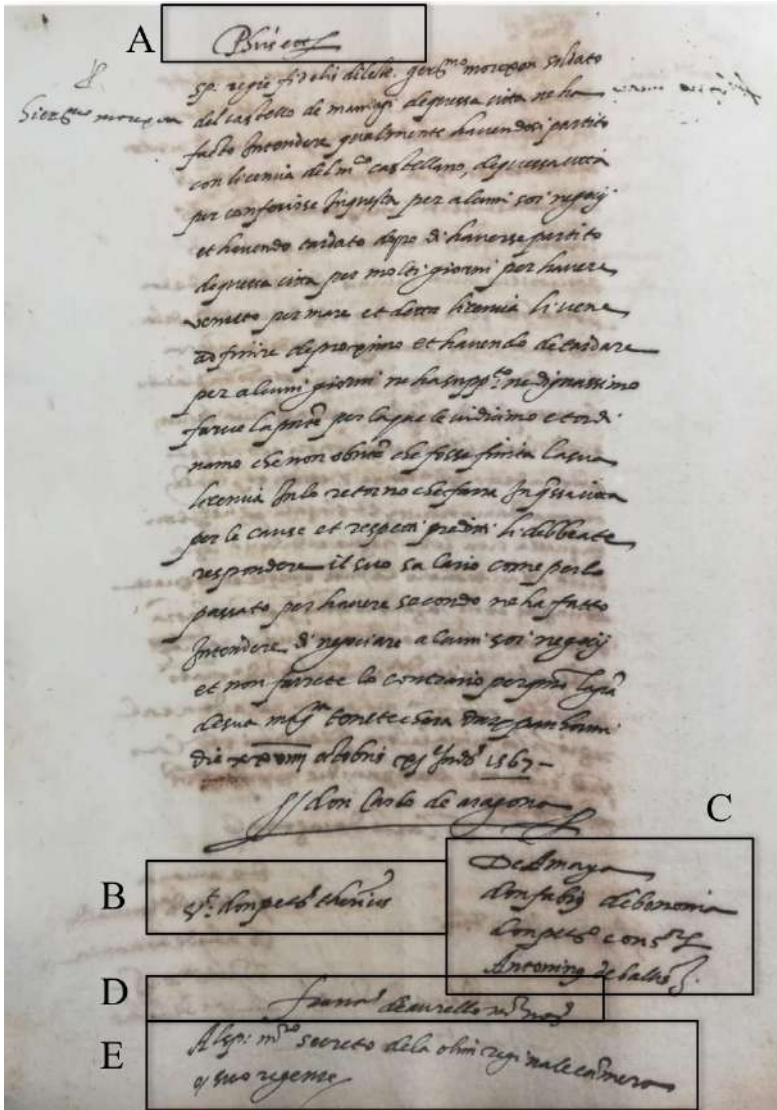 A
Phus etc
sp: regie fidelis dilecte. gerᵐᵒ morexon soldato
hierᵐᵒ morexon
del castello de maniaçi de quessa cita ne ha
facto Intendere qualmente havendosi partito
con licencia del mᶜᵒ castellano, de quessa cità
per conferirse In questa per alcuni soi negocij
et havendo tardato dopo di haverse partito
de quessa cita per molti giorni per havere
venuto per mare et detta licencia li vene
ad finire de proximo et havendo de tardare
per alcuni giorni ne ha suppᵗᵒ ne dignassimo
farne la pᵗᵉ per la quale vi dicimo et ordi
namo che non obstᵗᵉ che fosse finita la sua
licencia In lo retorno che farra In qssa cita
per le cause et respetti preditti li debbeate
respondere il suo salario come per lo
passato per havere secondo ne ha fatto
Intendere di negociare alcuni soi negocij
et non farrete lo contrario per qnto la gra
de sua mᵗᵃ tenete chara Datum panhormi
die xxviiii octobris xj Indˢ 1567
don Carlo de aragona
C
B
De Amaya
sᵗ: don petrˢ
don fabiˢ de bononia
don petrˢ consʳ
Antoninˢ de ballis
D
francˢ de aurello mʳ notˢ
E
Al sp: mʳᵒ secreto de la olim reginale camera
o suo regente